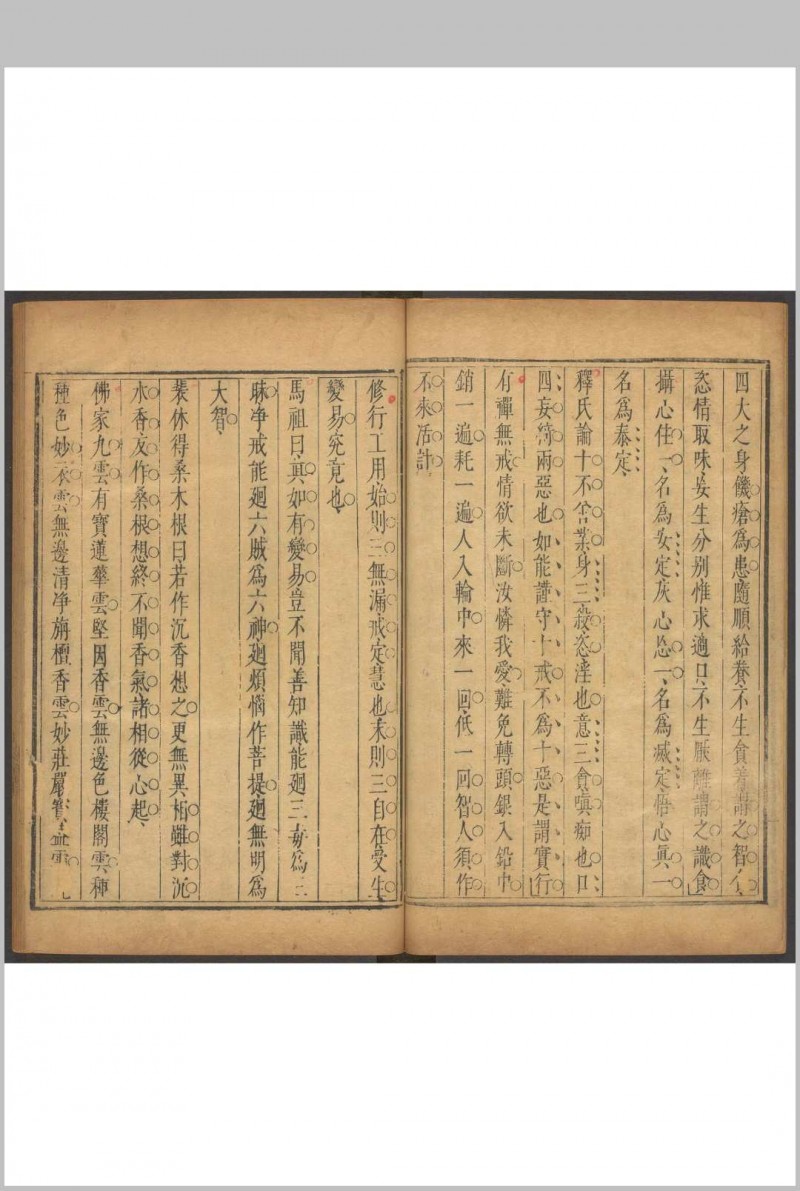 四大之身饑瘡爲患隨順給養不生貪著謂之智食
恣情取味妄生分別惟求適口不生厭離謂之識食
攝心住一名爲安定灰心㤀一名爲滅定悟心眞一
名爲泰定
釋氏論十不善業身三殺盗淫也意三貪嗔痴也口
四妄綺兩惡也如能謹守十戒不爲十惡是謂實行
有禪無戒情欲未斷汝憐我愛難免轉頭銀入鉛中
銷一遍耗一遍人入輪中來一回低一回智人須作
不來活計
修行工用始則三無漏戒定慧也末則三自在受生
變易究竟也
馬祖曰眞如有變易豈不聞善知識能廻三毒爲三
聚净戒能廻六賊爲六神廻煩惱作菩提廻無明爲
大智
裴休得桑木根曰若作沉香想之更無異相雖對沉
水香友作桑根想終不聞香氣諸相從心起
佛家九雲有寶蓮華雲堅固香雲無邊色樓閣雲種
種色妙衣雲無邊清净旃檀香雲妙莊嚴寳盖雲